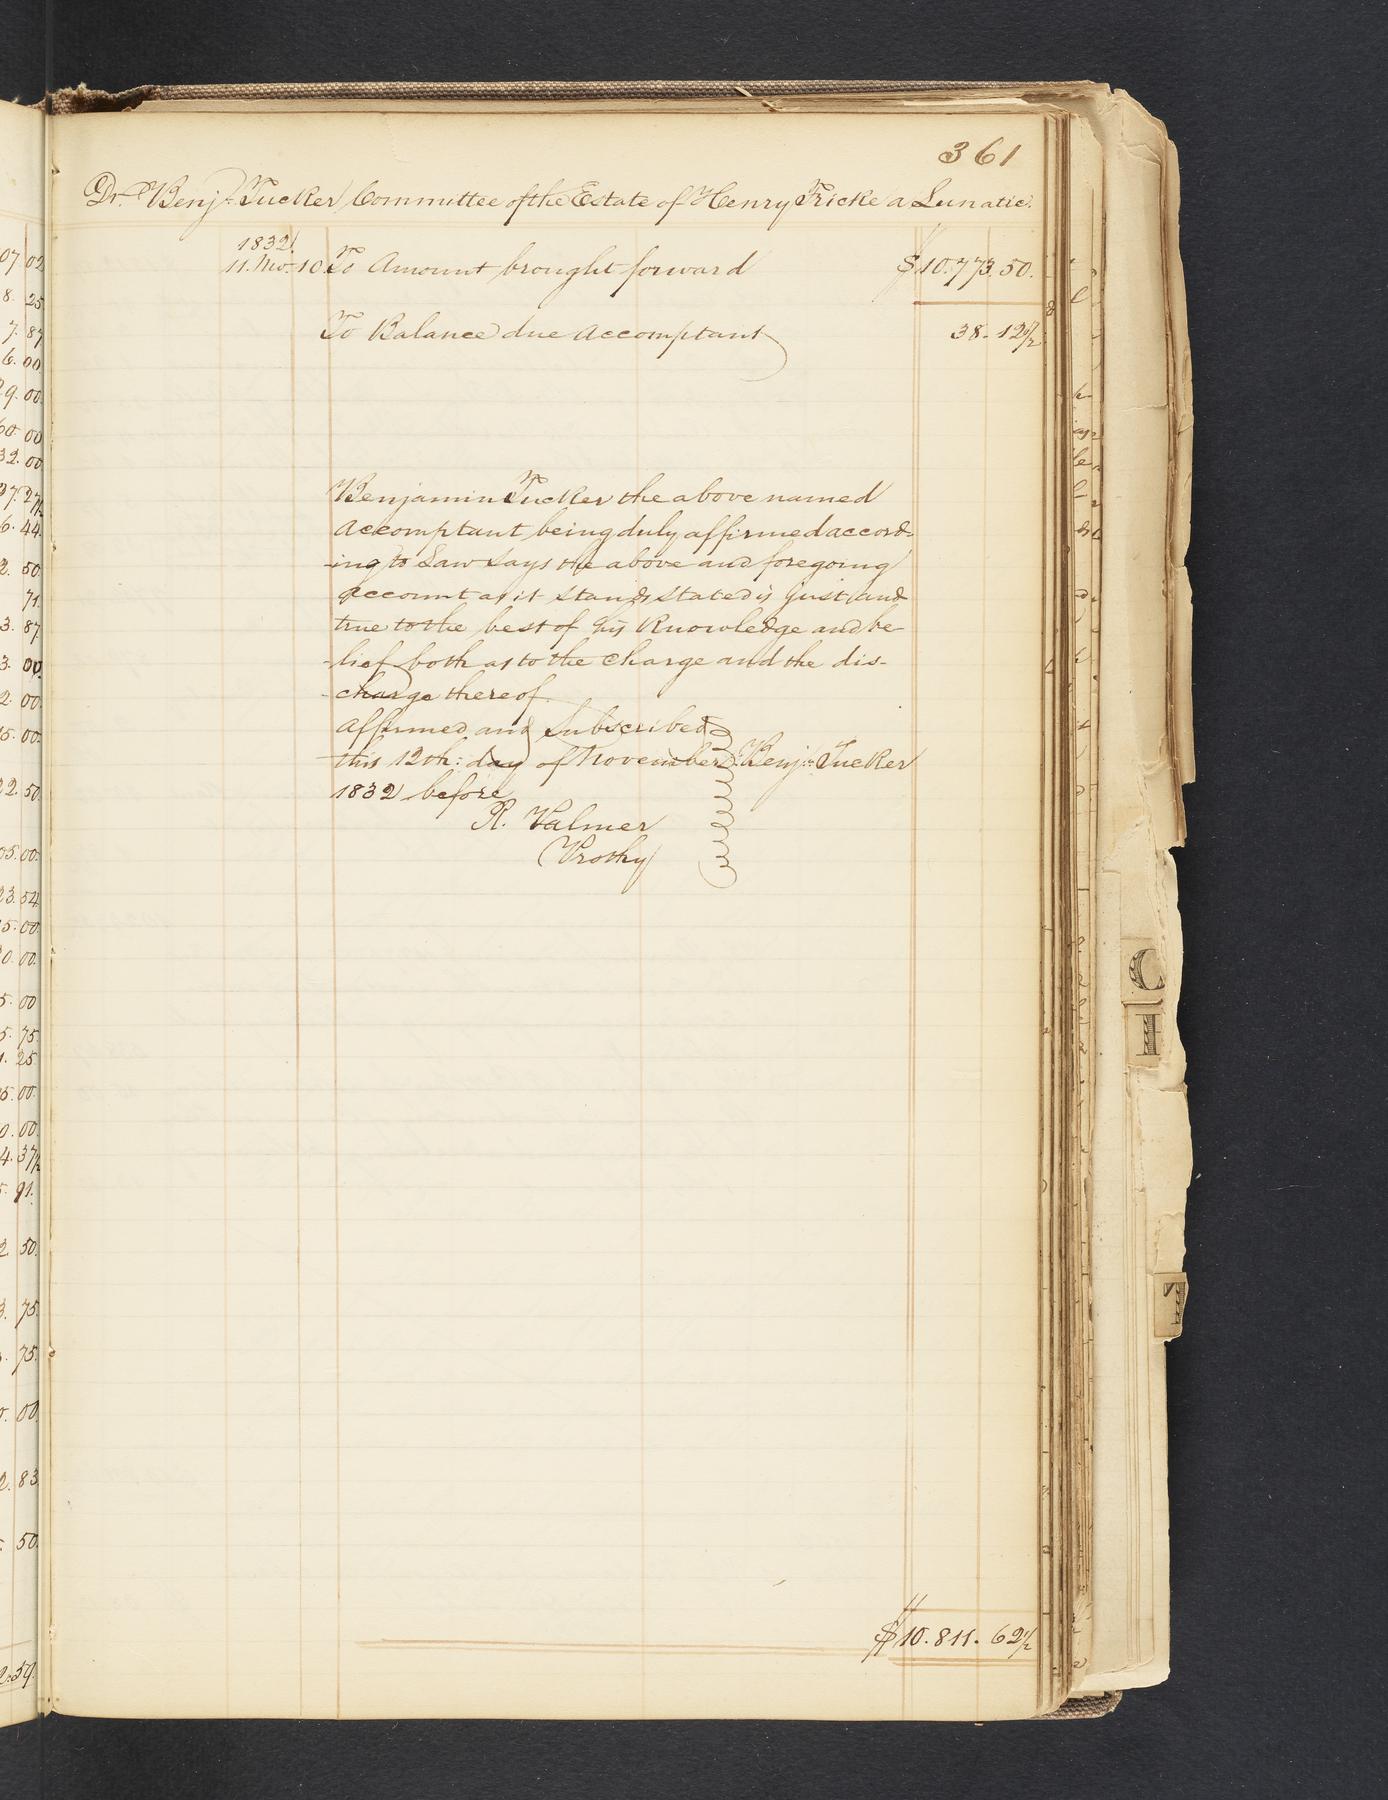 361
Dr. Benjn. Tucker Committee of the Estate of Henry Fricke a Lunatic.
1832
11. Mo. 10. To Amount brought forward $10.773.50.
To Balance due Accomptant 38.12½
Benjamin Tucker the above named
Accomptant being duly affirmed accord-
-ing to Law says the above and foregoing
account as it stands stated is just and
true to the best of his Knowledge and be-
-lief both as to the charge and the dis-
-charge thereof.
Affirmed and subscribed
this 12th: day of November Benjn. Tucker
1832 before
R. Palmer
Prothy
$10.811.62½
07 02
8. 25
7. 87
6. 00
29. 00
60. 00
32. 00
27. 27½
6. 44
2. 50
71
3. 87
3. 00
2. 00
15. 00
22. 50
05. 00
23. 54
15. 00
0. 00
5. 00
5. 75
1. 25
5. 00
0. 00
4. 37½
5. 91.
2. 50
3. 75
75
00
2. 83
50
C
I
T